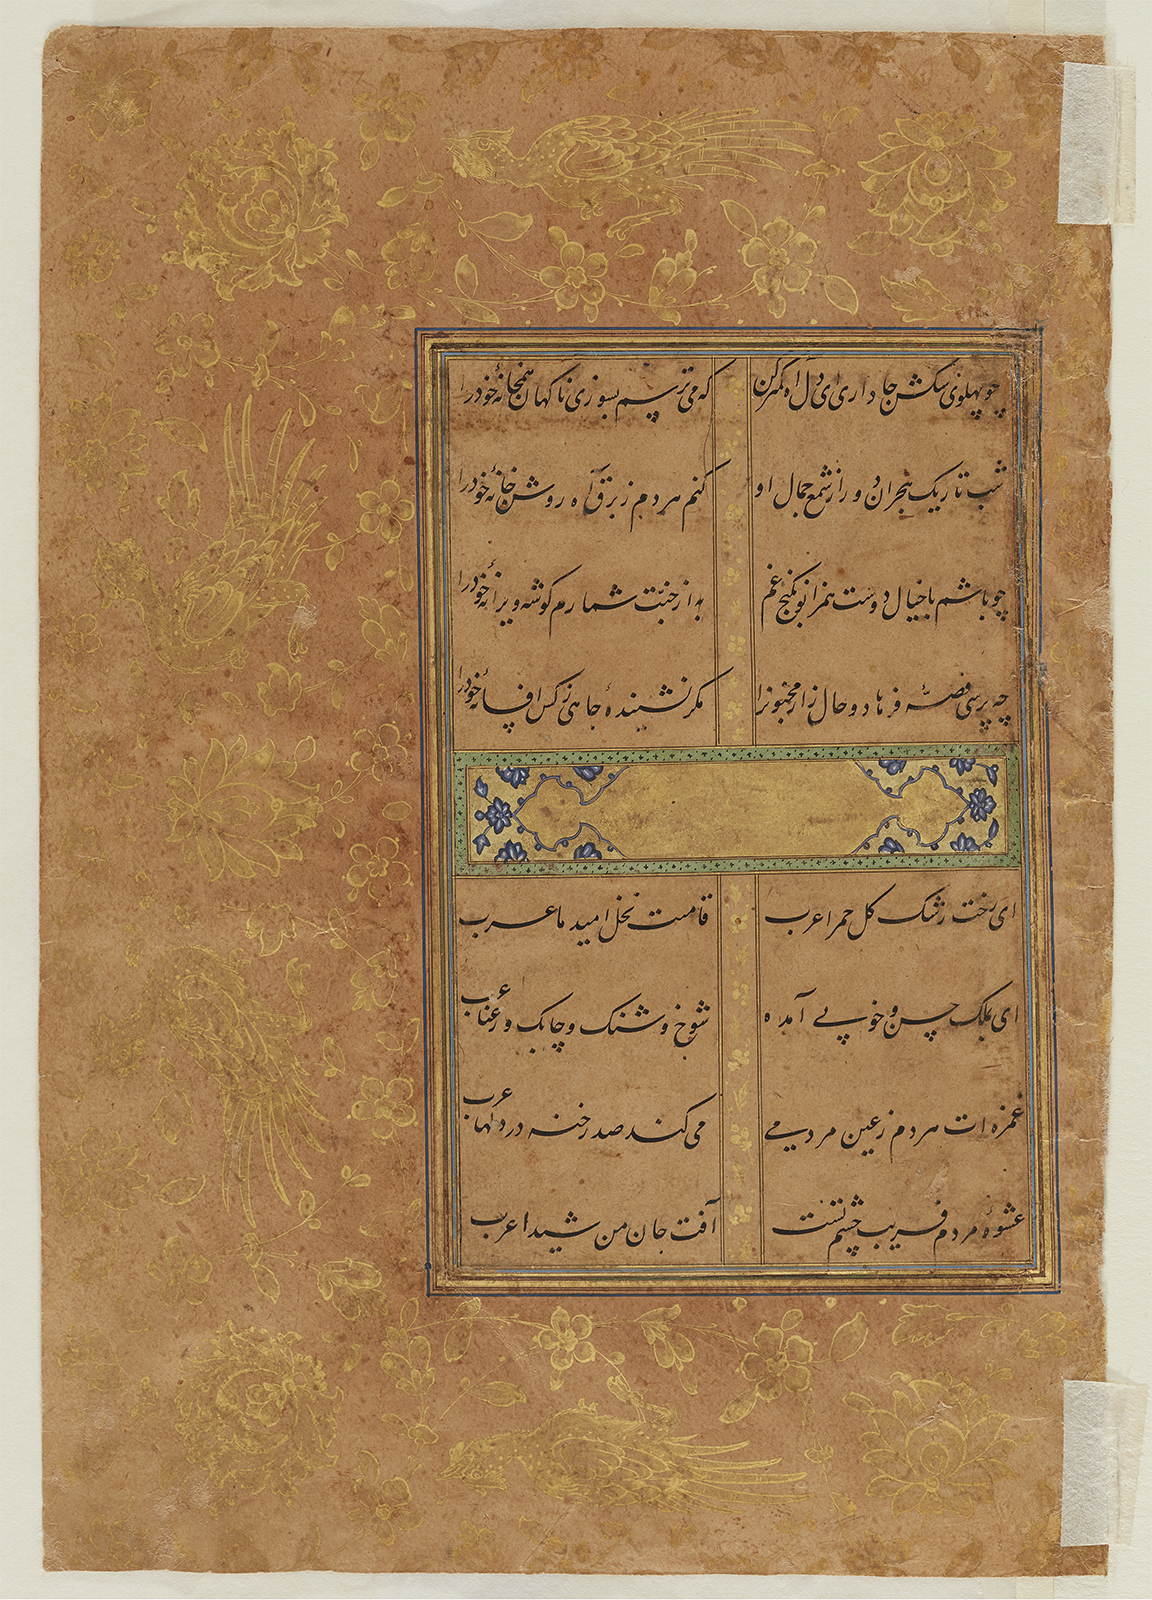 چو پهلوی سکش جا داری ای دل آه کم کن که می ترسم بسوزی ناکهان همخانهٔ خود را
شب تاریک هجران دور از شمع جمال او کنم هر دم ز برق آه روشن خانهٔ خود را
چو باشم با خیال دوست همزانو بکنج غم به از جنت شمارم کوشه ویرانهٔ خود را
چه پرسی قصهٔ فرهاد و حال زار مجنونرا مکر نشنیدهٔ جامی ز کس افسانهٔ خود را
ای رخت رشک کل حمرا عرب قامتت نخل امید ما عرب
ای بملک حسن و خوبی آمده شوخ و شنک و چابک و رعنا عرب
غمزه ات هر دم ز عین مردمی می کند صد رخنه در دلها عرب
عشوهٔ مردم فریب چشم تست آفت جان من شیدا عرب